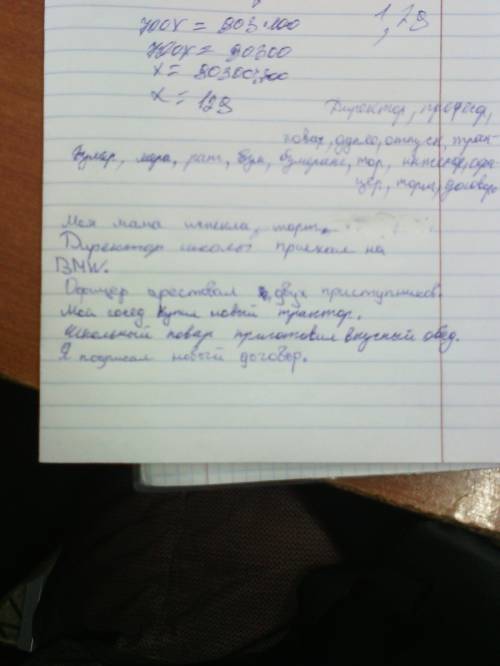 700x = 903.100
1,29
700x = 90300
x = 90300:700
x = 129
Директор, профес,
повар, одело, отпуск, трак-
бум, бумеранг, тор,
цер, торт, договор
Моя мама испекла торт.
Директор школы приехал на
BMW.
Офицер арестовал двух приступников.
Мой сосед купил новый трактор.
Школьный повар приготовил вкусный обед.
Я подписал новый договор.